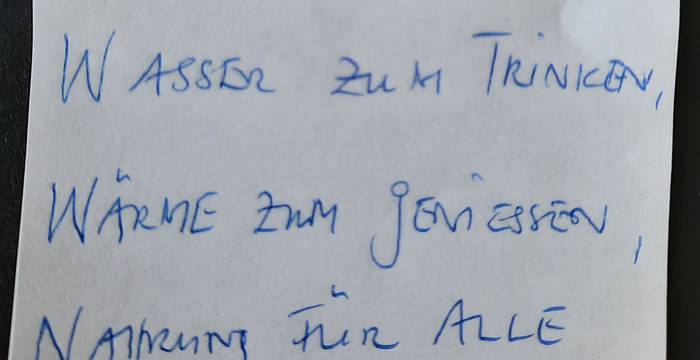 WASSER ZUM TRINKEN,
WÄRME ZUM GENIESSEN,
NAHRUNG FÜR ALLE